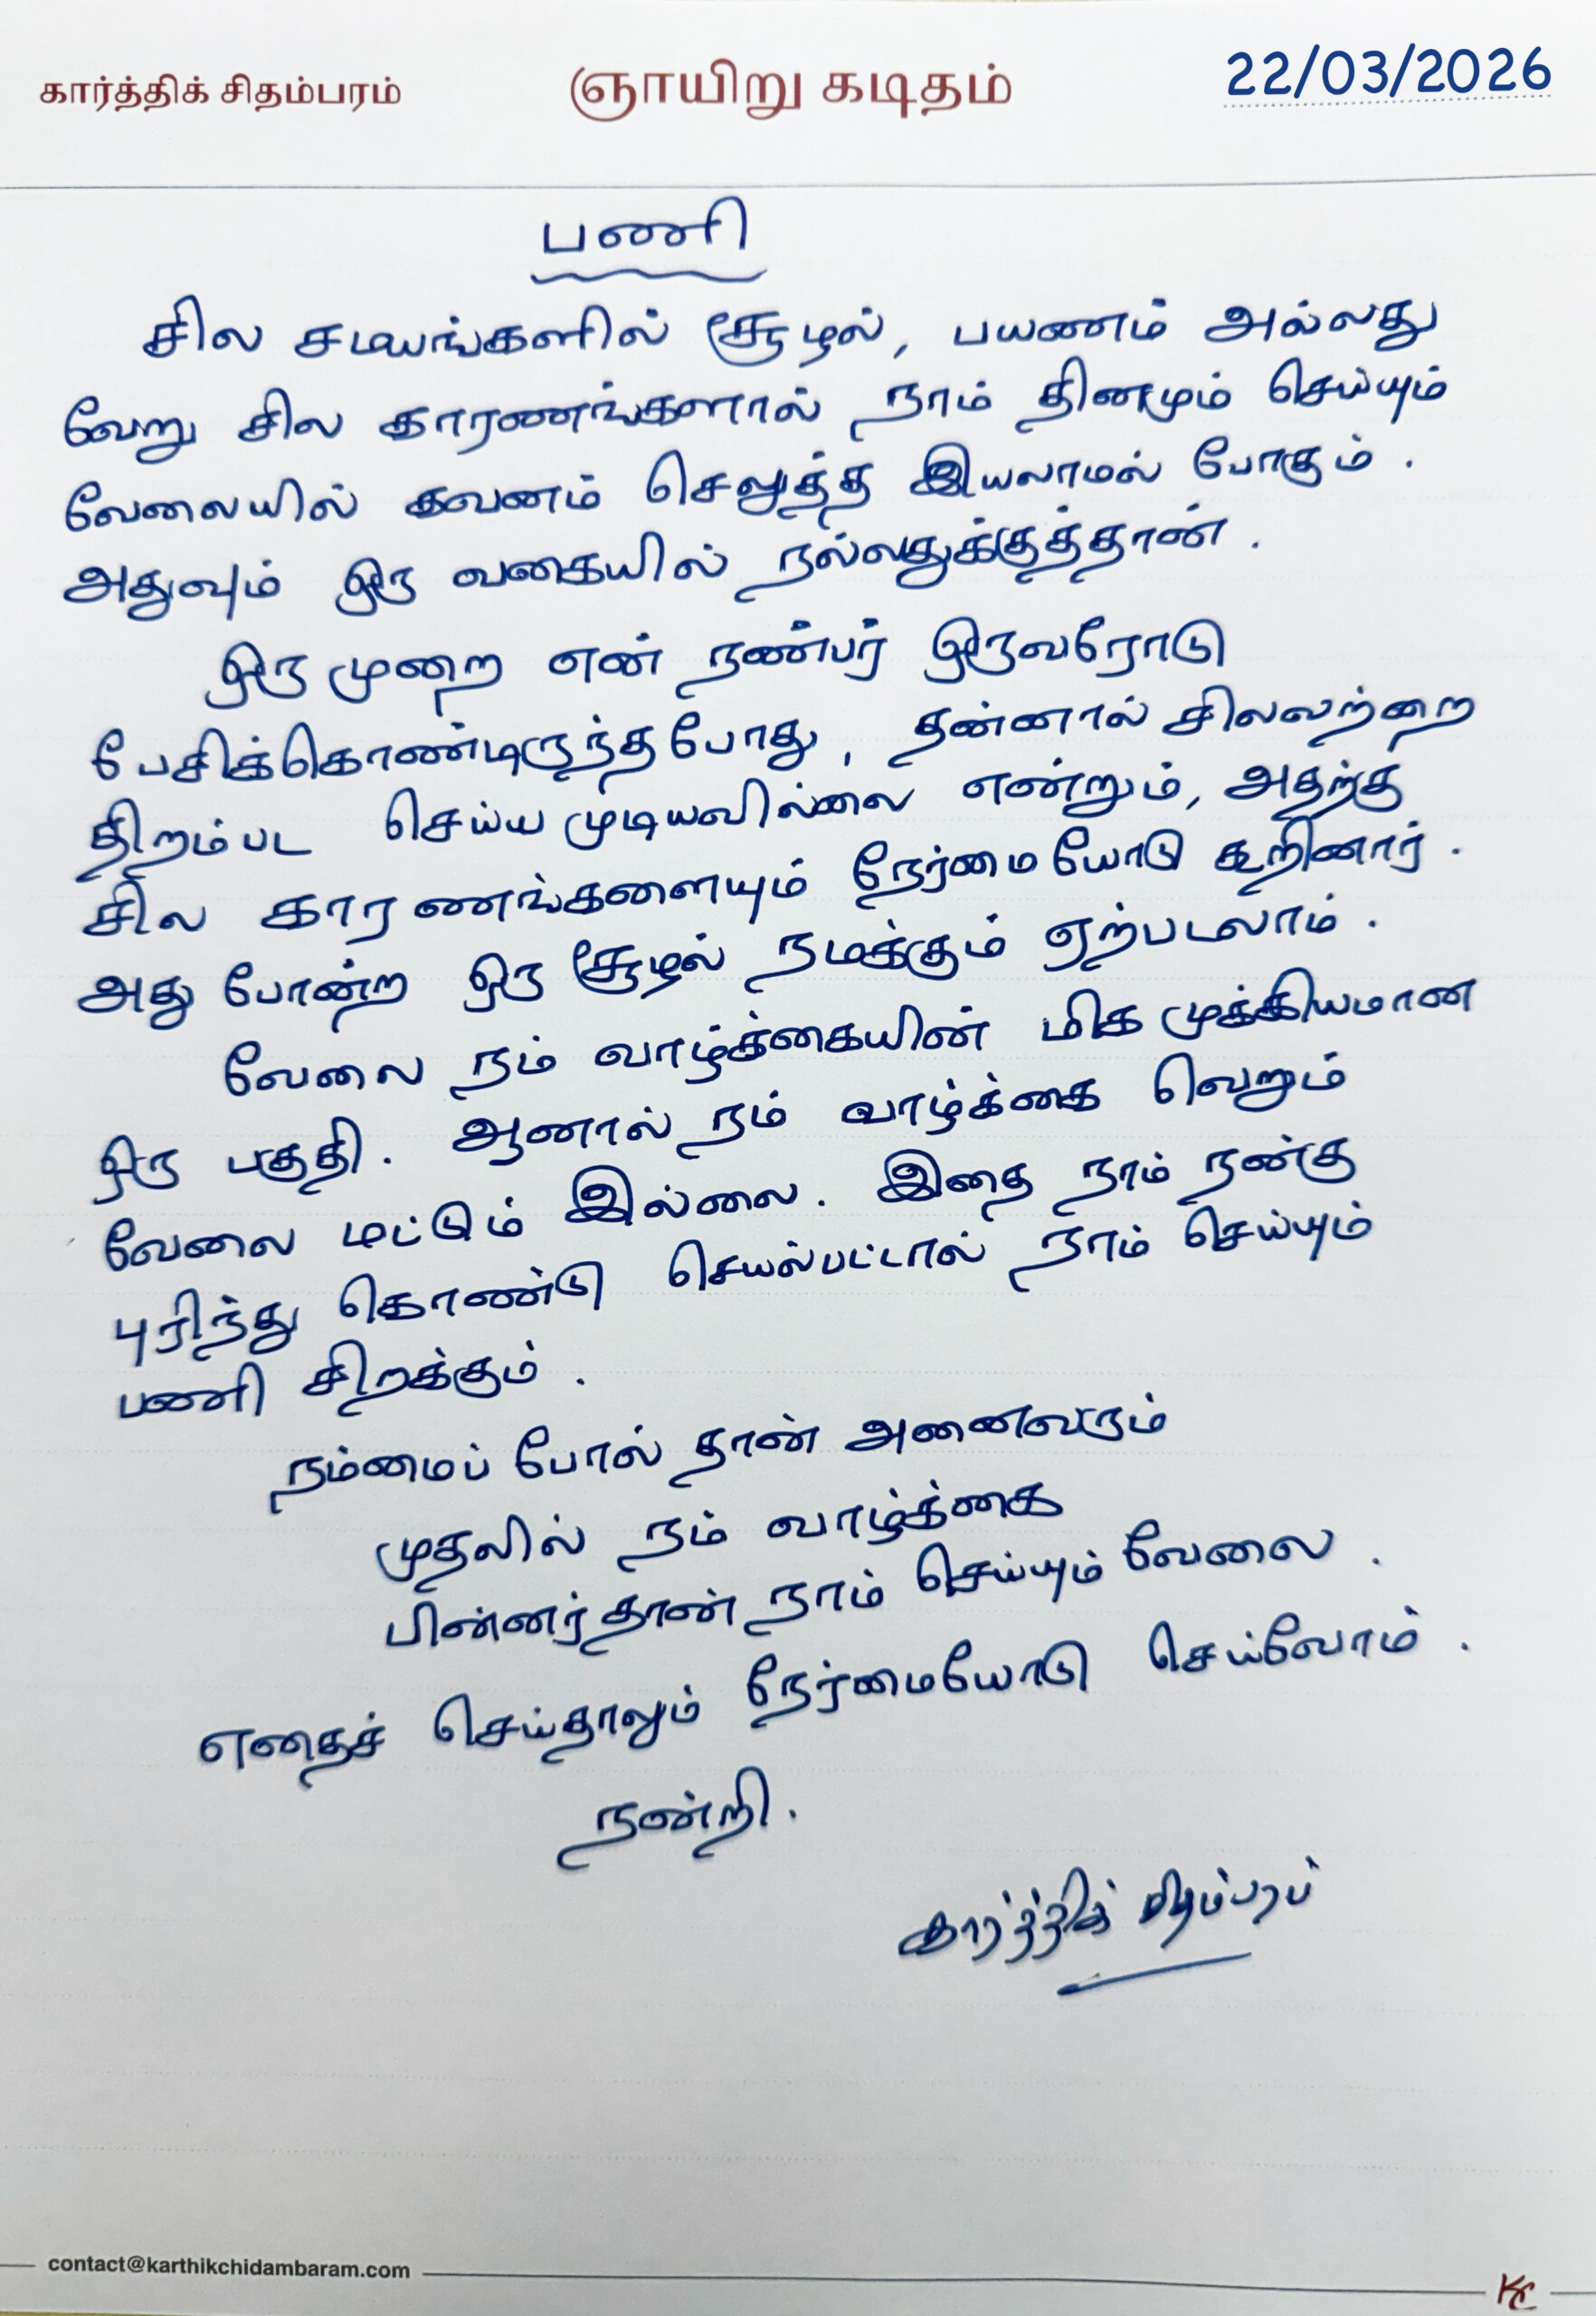 கார்த்திக் சிதம்பரம்
ஞாயிறு கடிதம்
22/03/2026
பணி
சில சமயங்களில் சூழல், பயணம் அல்லது
வேறு சில காரணங்களால் நாம் தினமும் செய்யும்
வேலையில் கவனம் செலுத்த இயலாமல் போகும்.
அதுவும் ஒரு வகையில் நல்லதுக்குத்தான்.
ஒரு முறை என் நண்பர் ஒருவரோடு
பேசிக்கொண்டிருந்தபோது, தன்னால் சிலவற்றை
திறம்பட செய்ய முடியவில்லை என்றும், அதற்கு
சில காரணங்களையும் நேர்மையோடு கூறினார்.
அது போன்ற ஒரு சூழல் நமக்கும் ஏற்படலாம்.
வேலை நம் வாழ்க்கையின் மிக முக்கியமான
ஒரு பகுதி. ஆனால் நம் வாழ்க்கை வெறும்
வேலை மட்டும் இல்லை. இதை நாம் நன்கு
புரிந்து கொண்டு செயல்பட்டால் நாம் செய்யும்
பணி சிறக்கும்.
நம்மைப் போல் தான் அனைவரும்
முதலில் நம் வாழ்க்கை
பின்னர்தான் நாம் செய்யும் வேலை.
எதைச் செய்தாலும் நேர்மையோடு செய்வோம்.
நன்றி.
கார்த்திக் சிதம்பரம்
contact@karthikchidambaram.com
KC